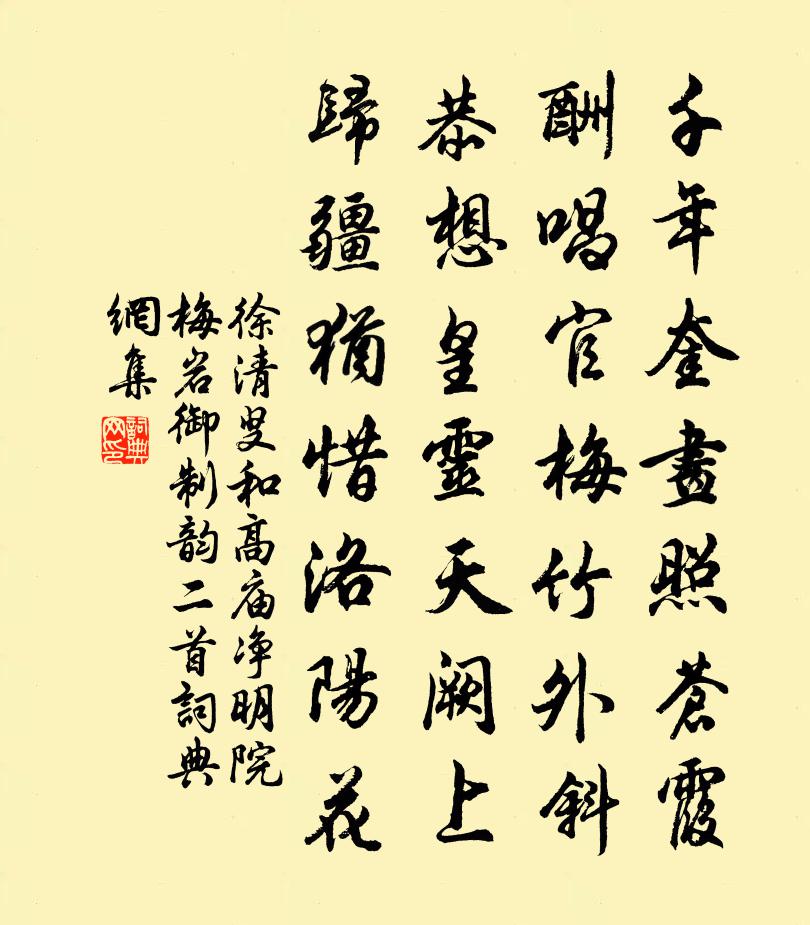 千年奎畫照蒼霞
酬唱官梅竹外斜
恭想皇靈天闕上
歸疆猶惜洛陽花
徐清叟和高庙净明院
梅岩御制韵二首詞典
網集
詞典網印